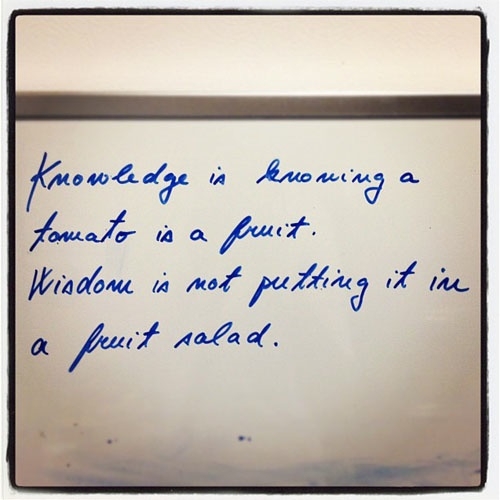 Knowledge is knowing a
tomato is a fruit.
Wisdom is not putting it in
a fruit salad.